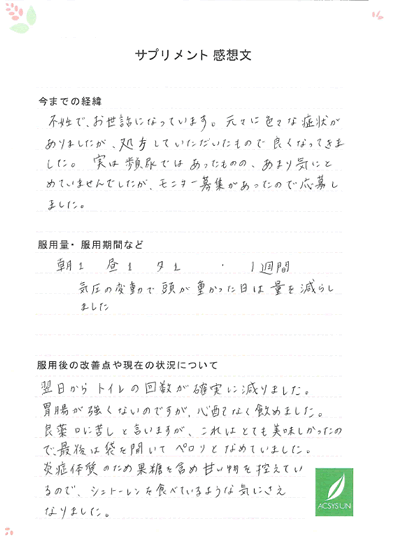 サプリメント 感想文
今までの経緯
不妊で、お世話になっています。元々に色々な症状が
ありましたが、処方していただいたもので良くなってきま
した。 実は頻尿ではあったものの、あまり気にと
めていませんでしたが、モニター募集があったので応募し
ました。
服用量・服用期間など
朝1 昼1 夕1 ・ 1週間
気圧の変動で頭が重かった日は量を減らし
ました
服用後の改善点や現在の状況について
翌日からトイレの回数が確実に減りました。
胃腸が強くないのですが、心配なく飲めました。
良薬口に苦しと言いますが、これはとても美味しかったの
で最後は袋を開いてペロリとなめていました。
炎症体質のため果糖を含め甘い物を控えてい
るので、シュトーレンを食べているような気にさえ
なりました。
ACSYSUN